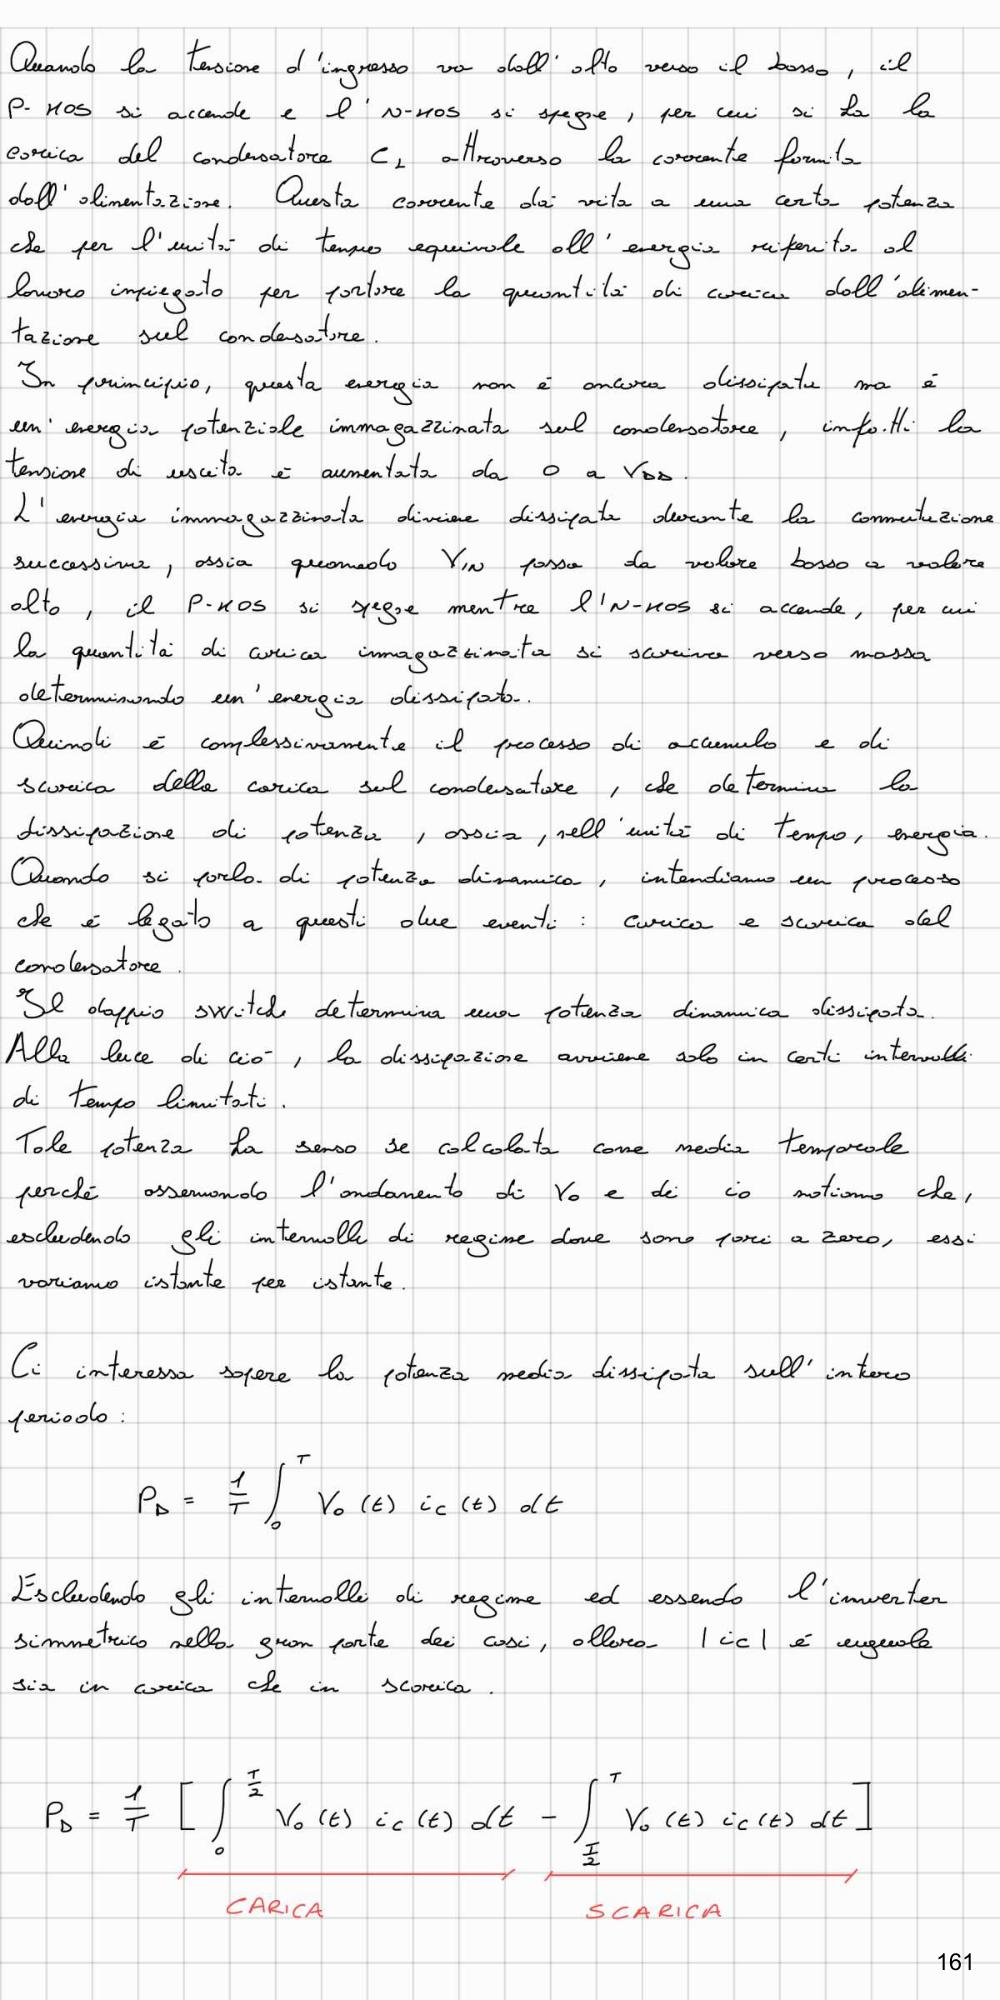 Quando la tensione d'ingresso va dall'alto verso il basso, il
P-MOS si accende e l'N-MOS si spegne, per cui si ha la
carica del condensatore C_L attraverso la corrente fornita
dall'alimentazione. Questa corrente dà vita a una certa potenza
che per l'unità di tempo equivale all'energia riferita al
lavoro impiegato per portare la quantità di carica dall'alimen-
tazione sul condensatore.
In principio, questa energia non è ancora dissipata ma è
un'energia potenziale immagazzinata sul condensatore, infatti la
tensione di uscita è aumentata da 0 a V_DD.
L'energia immagazzinata diviene dissipata durante la commutazione
successiva, ossia quando V_IN passa da valore basso a valore
alto, il P-MOS si spegne mentre l'N-MOS si accende, per cui
la quantità di carica immagazzinata si scarica verso massa
determinando un'energia dissipata.
Quindi è complessivamente il processo di accumulo e di
scarica della carica sul condensatore, che determina la
dissipazione di potenza, ossia, nell'unità di tempo, energia.
Quando si parla di potenza dinamica, intendiamo un processo
che è legato a questi due eventi: carica e scarica del
condensatore.
Il doppio switch determina una potenza dinamica dissipata.
Alla luce di ciò, la dissipazione avviene solo in certi intervalli
di tempo limitati.
Tale potenza ha senso se calcolata come media temporale
perché osservando l'andamento di V_o e di i_o notiamo che,
escludendo gli intervalli di regime dove sono pari a zero, essi
variano istante per istante.
Ci interessa sapere la potenza media dissipata sull'intero
periodo:
P_D = 1/T ∫_0^T V_o(t) i_c(t) dt
Escludendo gli intervalli di regime ed essendo l'inverter
simmetrico nella gran parte dei casi, allora |i_c| è uguale
sia in carica che in scarica.
P_D = 1/T [ ∫_0^{T/2} V_o(t) i_c(t) dt - ∫_{T/2}^T V_o(t) i_c(t) dt ]
CARICA SCARICA
161